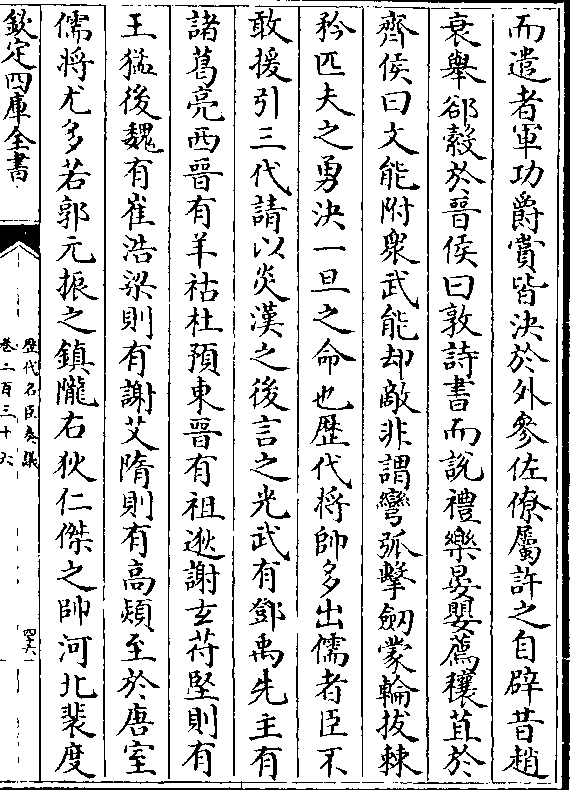 而遣者軍功爵賞皆決於外參佐僚屬許之自辟昔趙
衰舉郤縠於晉侯曰敦詩書而說禮樂晏嬰薦穰苴於
齊侯曰文能附衆武能却敵非謂彎弧擊劒蒙輪拔棘
矜匹夫之勇決一旦之命也歴代將帥多出儒者臣不
敢援引三代請以炎漢之後言之光武有鄧禹先主有
諸葛亮西晉有羊祜杜預東晉有祖逖謝玄苻堅則有
王猛後魏有崔浩梁則有謝艾隋則有高熲至於唐室
儒將尤多若郭元振之鎮隴右狄仁傑之帥河北裴度
欽定四庫全書
歴代名臣奏議
卷二百三十六
四六